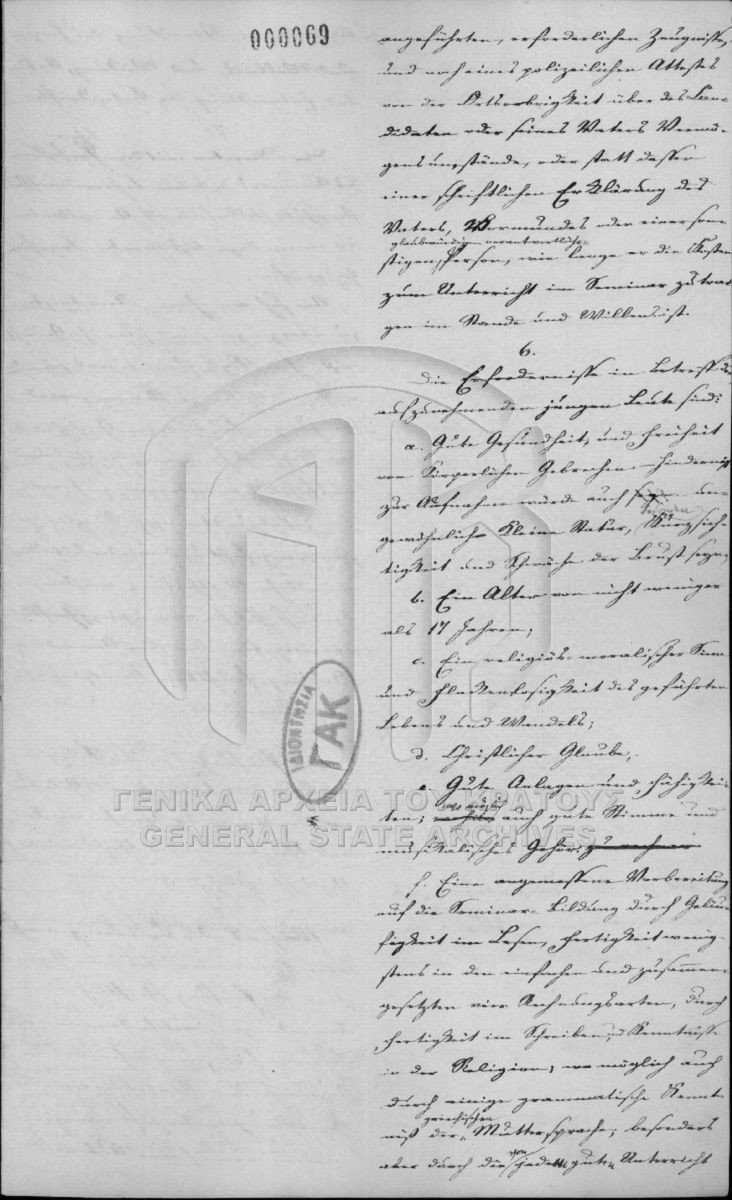 000069
angeführten, erforderlichen Zeugnisse,
und noch eines polizeilichen Attestes
von der Ortsobrigkeit über des Can-
didaten oder seines Vaters Vermö-
gensumstände, oder statt dessen
einer schriftlichen Erklärung des
Vaters, Vormundes oder einer son-
glaubwürdigen verantwortlichen
stigen Person, wie lange er die Kosten
zum Unterricht im Seminar zu tra-
gen im Stande und Willens ist.
6.
Die Erfordernisse in Betreff der
aufzunehmenden jungen Leute sind:
a. Gute Gesundheit, und Freiheit
von körperlichen Gebrechen. Hinderniß
zur Aufnahme würde auch un-
gewöhnlich kleine Statur, Kurzsich-
tigkeit und Schwäche der Brust seyn;
b. Ein Alter von nicht weniger
als 17 Jahren;
c. Ein religiös-moralischer Sinn
und Fleckenlosigkeit des geführten
Lebens und Wandels;
d. Christlicher Glaube,
e. Gute Anlagen und Fähigkei-
wo möglich
ten; auch gute Stimme und
musikalisches Gehör;
f. Eine angemessene Vorbereitung
auf die Seminar-Bildung durch Geläu-
figkeit im Lesen, Fertigkeit wenig-
stens in den einfachen und zusammen-
gesetzten vier Rechnungsarten, durch
Fertigkeit im Schreiben, und Kenntnisse
in der Religion; wo möglich auch
durch einige grammatische Kennt-
griechischen
niß der Muttersprache; besonders
von
aber durch die jedem guten Unterricht
ΙΔΙΟΚΤΗΣΙΑ
ΓΑΚ
ΓΕΝΙΚΑ ΑΡΧΕΙΑ ΤΟΥ ΚΡΑΤΟΥΣ
GENERAL STATE ARCHIVES